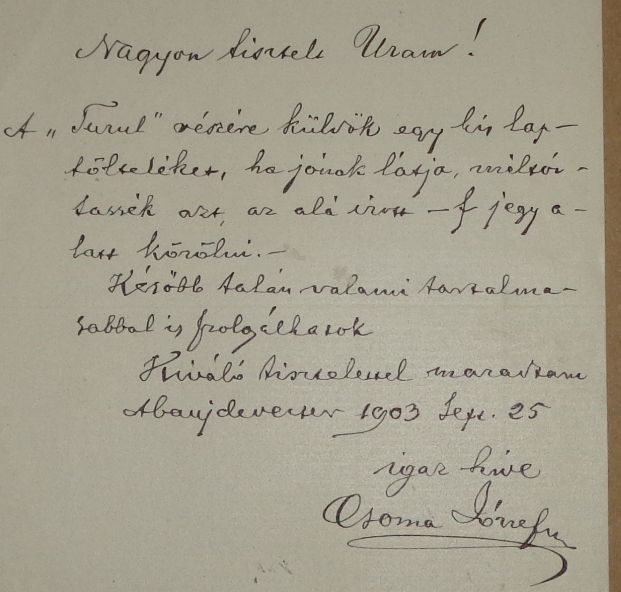 Nagyon tisztelt Uram!
A „Turul" részére küldök egy kis lap-
tölteléket, ha jónak látja, méltóz-
tassék azt, az alá irott —f jegy a-
latt közölni.—
Később talán valami tartalma-
sabbal is szolgálhatok
Kiváló tisztelettel maradtam
Abaujdevecser 1903 Sept. 25
igaz hive
Csoma József